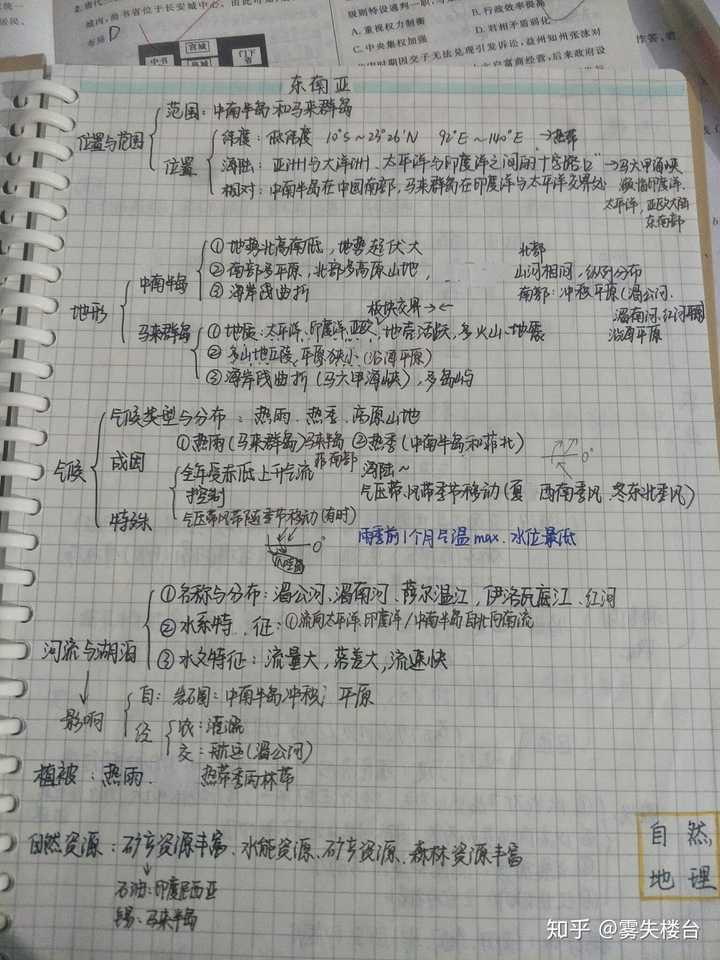 级则特设通判一职,
B. 行政效率提高
A. 重视权力制衡
D. 君相矛盾弱化
C. 中央集权加强
D
宫城
中书
门下省
东南亚
位置与范围
范围：中南半岛和马来群岛
位置
纬度：低纬度 10°S～23°26′N 92°E～140°E →热带
海陆：亚洲与大洋洲、太平洋与印度洋之间的"十字路口" →马六甲海峡
相对：中南半岛在中国南部，马来群岛在印度洋与太平洋交界处
濒临印度洋、
太平洋，亚欧大陆
东南部
地形
中南半岛
①地势北高南低，地势起伏大
②南部多平原，北部多高原山地，
③海岸线曲折
北部
山河相间，纵列分布
南部：冲积平原（湄公河、
湄南河、红河平原）
沿海平原
板块交界→←
马来群岛
①地质：太平洋、印度洋、亚欧、地壳活跃，多火山、地震
②多山地丘陵，平原狭小（沿海平原）
③海岸线曲折（马六甲海峡），多岛屿
气候
气候类型与分布：热雨、热季、高原山地
①热雨（马来群岛）马来半岛 ②热季（中南半岛和菲北）
菲南部
成因
全年受赤低上升气流
控制
海陆～
气压带、风带季节移动（夏 西南季风、冬东北季风）
0°
特殊
气压带风带随季节移动（有时）
0°
雨季前1个月气温max、水位最低
河流与湖泊
①名称与分布：湄公河、湄南河、萨尔温江，伊洛瓦底江、红河
②水系特 征：①流向太平洋、印度洋/中南半岛自北向南流
③水文特征：流量大，落差大，流速快
影响
自：岩石圈：中南半岛冲积 平原
经
农：灌溉
交：航运（湄公河）
植被：热雨、 热带季雨林带
自然资源：矿产资源丰富、水能资源、矿产资源、森林资源丰富
石油：印度尼西亚
锡：马来半岛
自然
地理
知乎 @雾失楼台